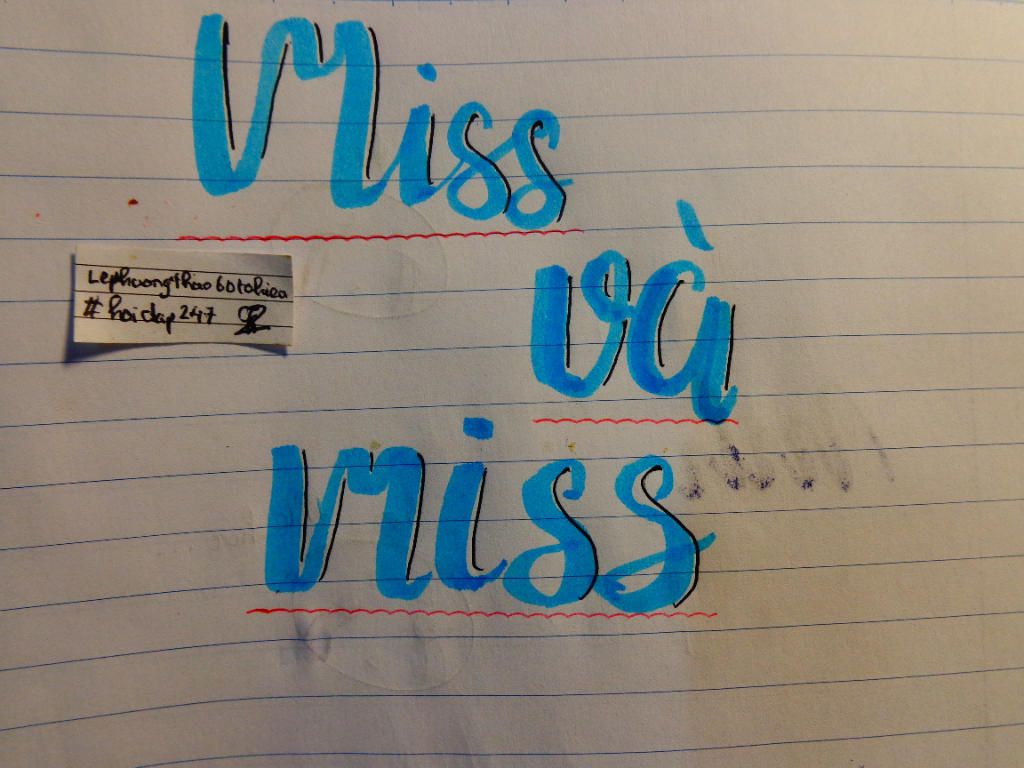 Miss
và
Miss
Lephuongthao6atohieu
#hoidap247